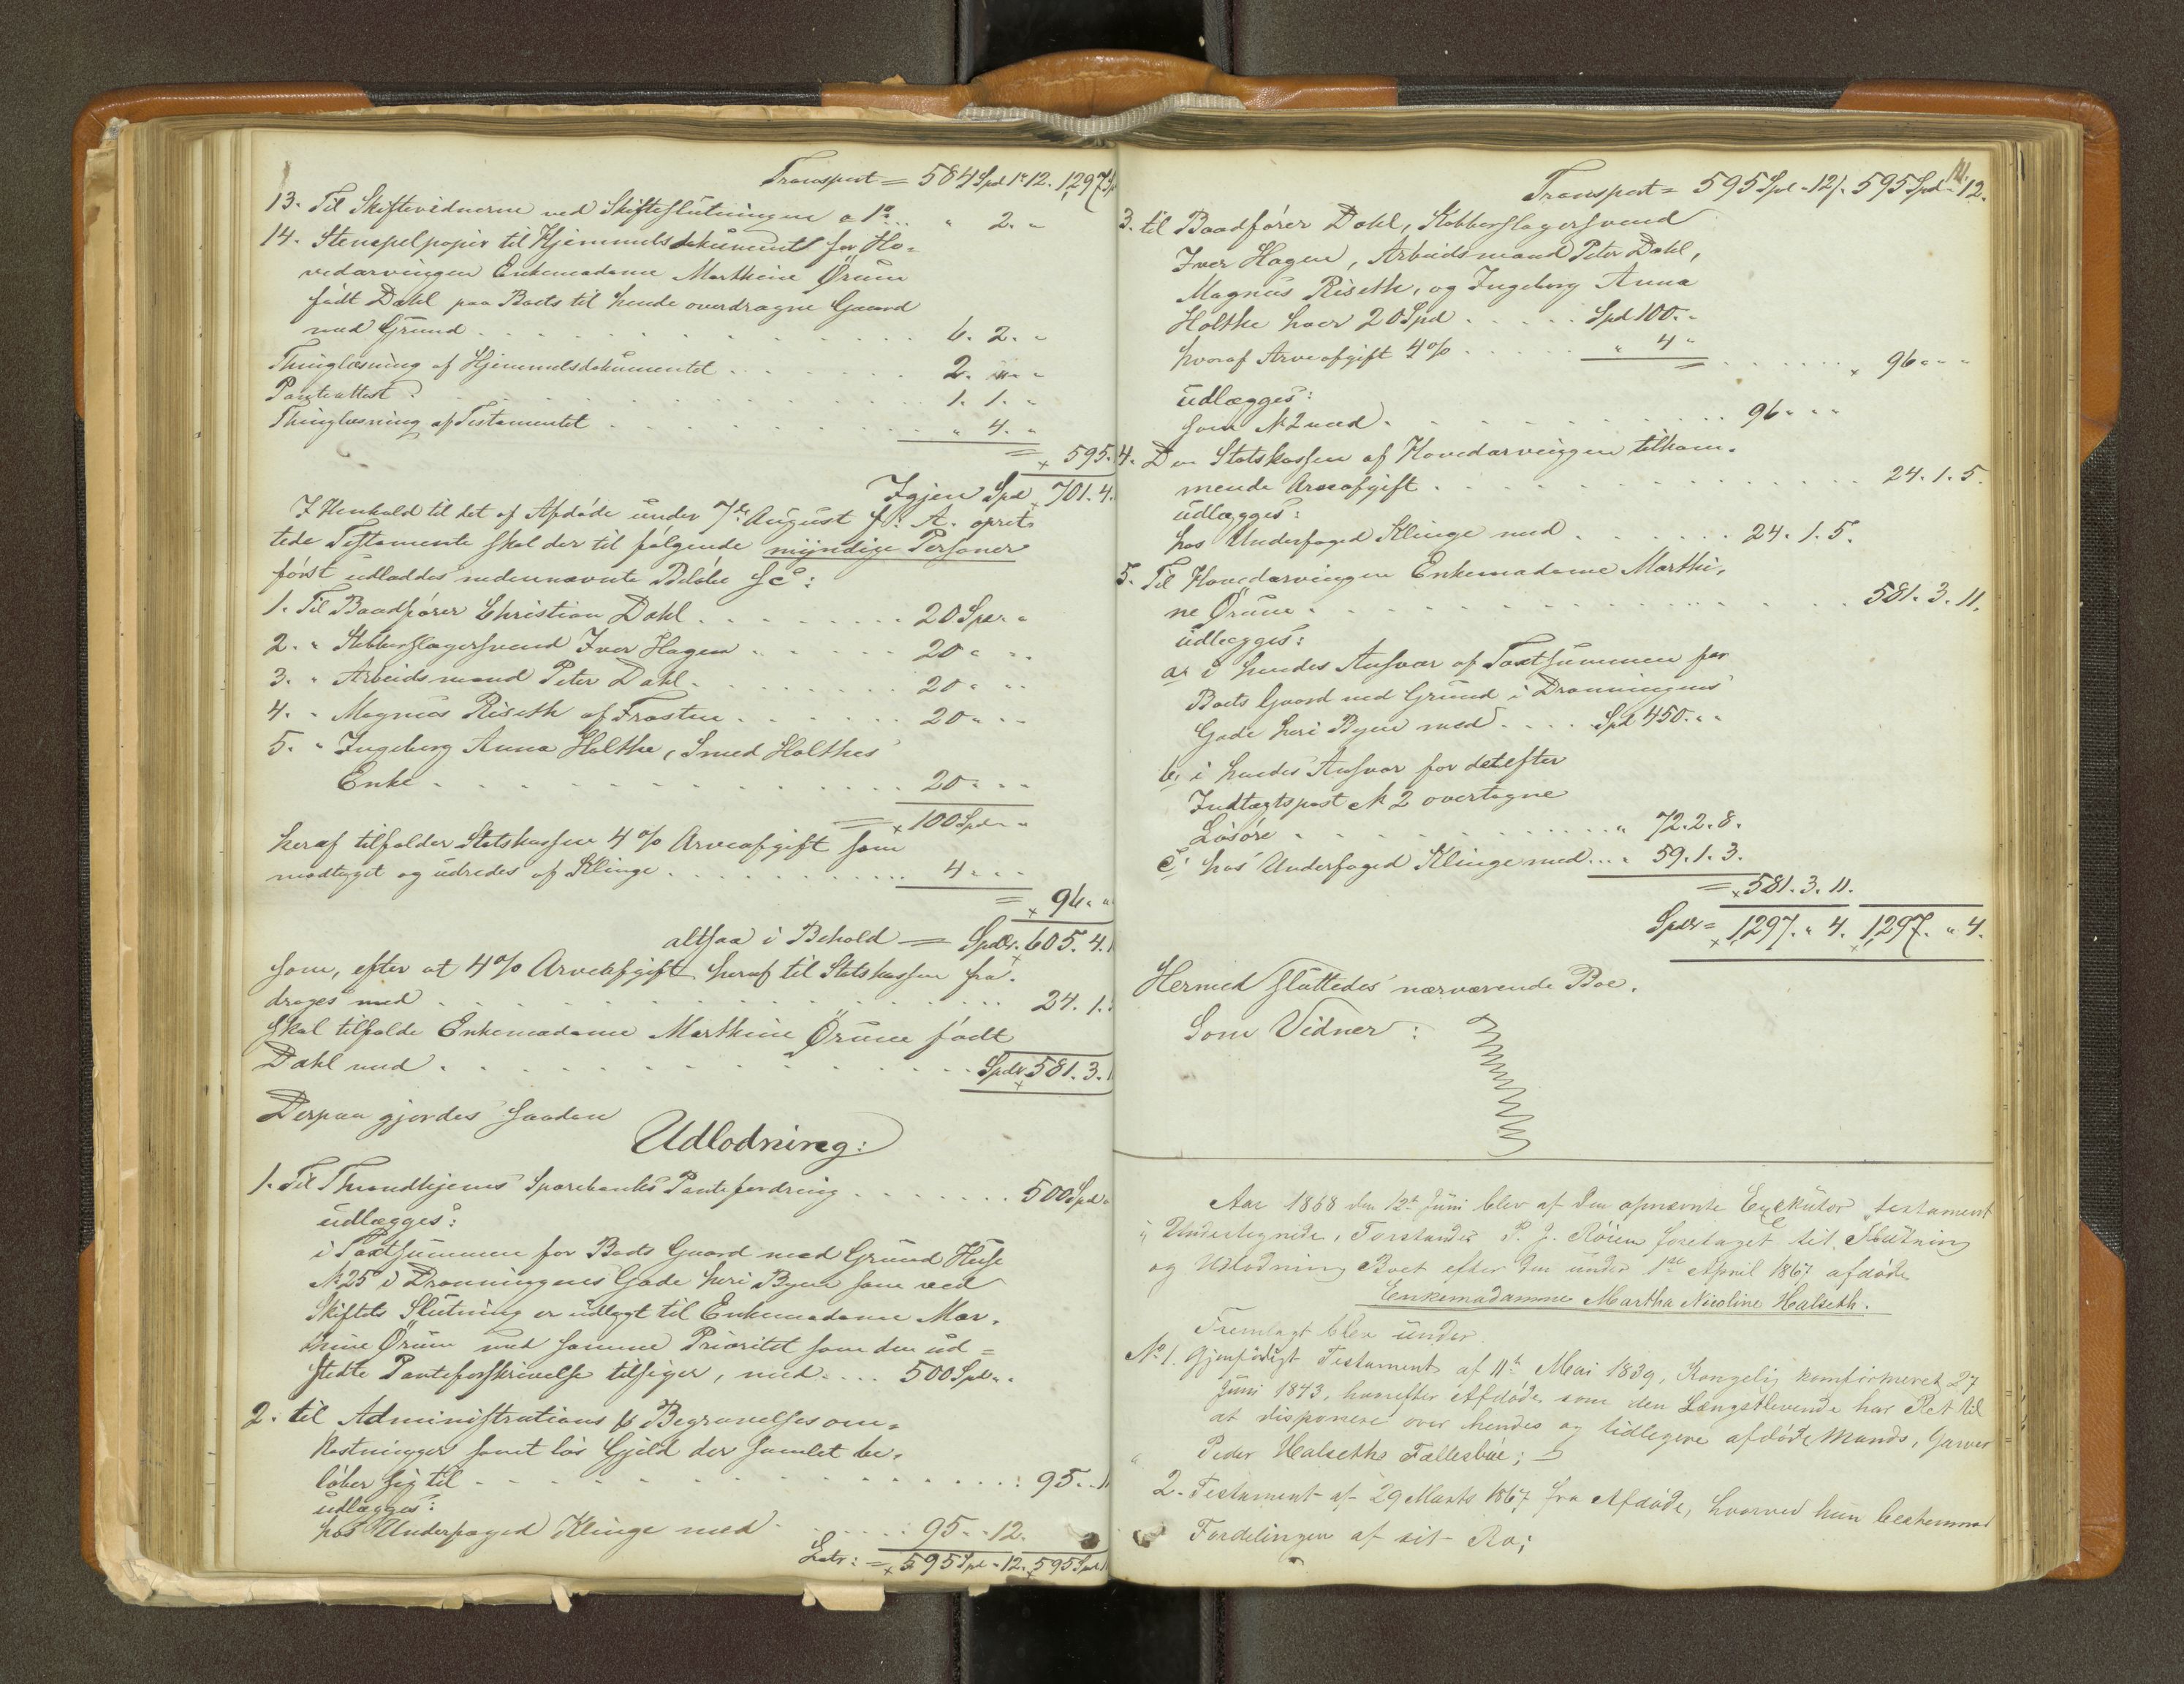 Transport = 584 Spd 1 " 12. 1297 Sp
13. Til Skiftevidnerne ved Skifteslutningen a 1 " . . . " 2. "
14. Stempelpapir til Hjemmelsdokument for Ho-
vedarvingen Enkemadame Marthine Ørum
født Dahl paa Boets til hende overdragne Gaard
med Grund . . . . . 6. 2. "
Thinglæsning af Hjemmelsdokumentet . . . . . 2. " "
Panteattest . . . . . 1. 1. "
Thinglæsning af Testamentet . . . . . " 4. "
= 595.
Igjen Spd 701. 4.
I Henhold til det af Afdøde under 7de August f: A. opret-
tede Testamente skal der til følgende myndige Personer
først udloddes nedennævnte Beløbe sc:
1. Til Baadfører Christian Dahl . . . . . 20 Spd " "
2. " Kobberslagersvend Iver Hagen . . . . . 20 " "
3. " Arbeidsmand Peter Dahl . . . . . 20 " "
4. " Magnus Riseth af Frosten . . . . . 20 " "
5. " Ingeborg Anna Holthe, Smed Holthes
Enke . . . . . 20 " "
= 100 Spd " "
heraf tilfalder Statskassen 4 % Arveafgift som
modtaget og udredes af Klinge . . . . . 4 " "
= 96 " "
altsaa i Behold = Spdlr. 605. 4.
som, efter at 4 % Arveafgift heraf til Statskassen fra-
drages med . . . . . 24. 1.
skal tilfalde Enkemadame Marthine Ørum født
Dahl med . . . . . Spdlr 581. 3.
Derpaa gjordes saadan
Udlodning:
1. Til Throndhjems Sparebanks Pantefordring . . . . . 500 Spd "
udlægges:
i Taxtsummen for Boets Gaard med Grund Huse
No 25 i Dronningens Gade heri Byen som ved
Skiftets Slutning er udlagt til Enkemadame Mar-
thine Ørum med samme Prioritet som den ud=
stedte Panteforskrivelse tilsiger, med . . . 500 Spd " "
2. til Administrations & Begravelsesom-
kostninger samt løs Gjeld der samlet be-
løber sig til . . . . . 95. "
udlægges:
hos Underfoged Klinge med . . . . . 95 " 12.
Latr: = 595 Spd " 12. 595 Spd
Transport = 595 Spd " 12/. 595 Spd " 12.
3. til Baadfører Dahl, Kobberslagersvend
Iver Hagen, Arbeidsmand Peter Dahl,
Magnus Riseth, og Ingeborg Anna
Holthe hver 20 Spd . . . . . Spd 100. "
hvoraf Arveafgift 4 % . . . . . " 4 "
= . . . . . 96 " "
udlægges:
som No 2 med . . . . . 96 " "
4. Den Statskassen af Hovedarvingen tilkom-
mende Arveafgift . . . . . 24. 1. 5.
udlægges:
hos Underfoged Klinge med . . . . . 24. 1. 5.
5. Til Hovedarvingen Enkemadame Marthi-
ne Ørum . . . . . 581. 3. 11.
udlægges:
a, i hendes Ansvar af Taxtsummen for
Boets Gaard med Grund i Dronningens
Gade heri Byen med . . . . Spd 450. " "
b, i hendes Ansvar for det efter
Indtægtspost No 2 overtagne
Løsøre . . . . . " 72. 2. 8.
c, hos Underfoged Klinge med . . . " 59. 1. 3.
= 581. 3. 11.
Spdlr = 1297. " 4. 1297. " 4.
Hermed sluttedes nærværende Boe.
Som Vidner:
Aar 1868 den 12te Juni blev af den opnævnte Exekutor testament
" Undertegnede, Forstander P. J. Röien foretaget til Slutning
og Udlodning Boet efter den under 1ste April 1867 afdøde
Enkemadamme Martha Nicoline Halseth.
Fremlagt blev under
No 1. Gjensidigt Testament af 11te Mai 1839, Kongelig konfirmeret 27
Juni 1843, hvorefter Afdøde som den Længstlevende har Ret til
at disponere over hendes og tidligere afdøde Mands, Garver
" Peder Halseths Fællesboe;
2. Testament af 29 Marts 1867 fra Afdøde, hvorved hun bestemmer
Fordelingen af sit Bo;